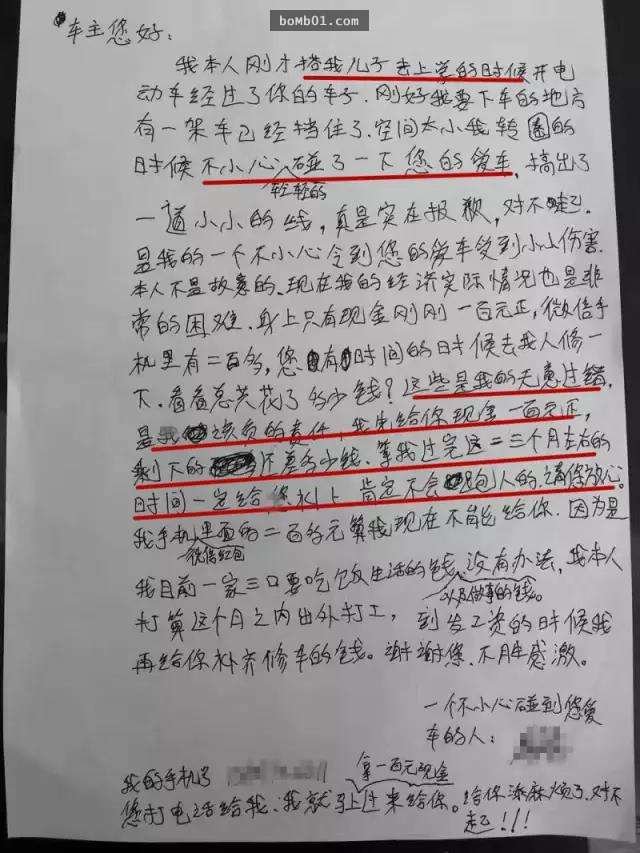 bomb01.com
车主您好：
我本人刚才搭我儿子去上学的时候开电
动车经过了你的车子．刚好我要下车的地方
有一架车已经挡住了．空间太小我转圈的
时候不小心碰了一下您的爱车，搞出了
轻轻的
一道小小的线，真是实在抱歉，对不起了．
是我的一个不小心令到您的爱车受到小小伤害．
本人不是故意的、现在我的经济实际情况也是非
常的困难．身上只有现金刚刚一百元正，微信手
机里有二百多，您有时间的时候去找人修一
下．看看总共花了多少钱？这些是我的无意过错，
是我该负的责任，我先给你现金一百元正，
剩下的还差多少钱．等我过完这二三个月左右的
时间一定给您补上 肯定不会跑人的．请你放心。
我手机里面的二百多元算我现在不能给你．因为是
微信红包
我目前一家三口要吃饭生活的钱、没有办法，我本人
以及做事的钱。
打算这个月之内出外打工，到发工资的时候我
再给你补齐修车的钱。谢谢您．不胜感激。
一个不小心碰到您爱
车的人：
我的手机号
拿一百元现金
您打电话给我．我就马上过来给你。给你添麻烦了．对不
起了!!!